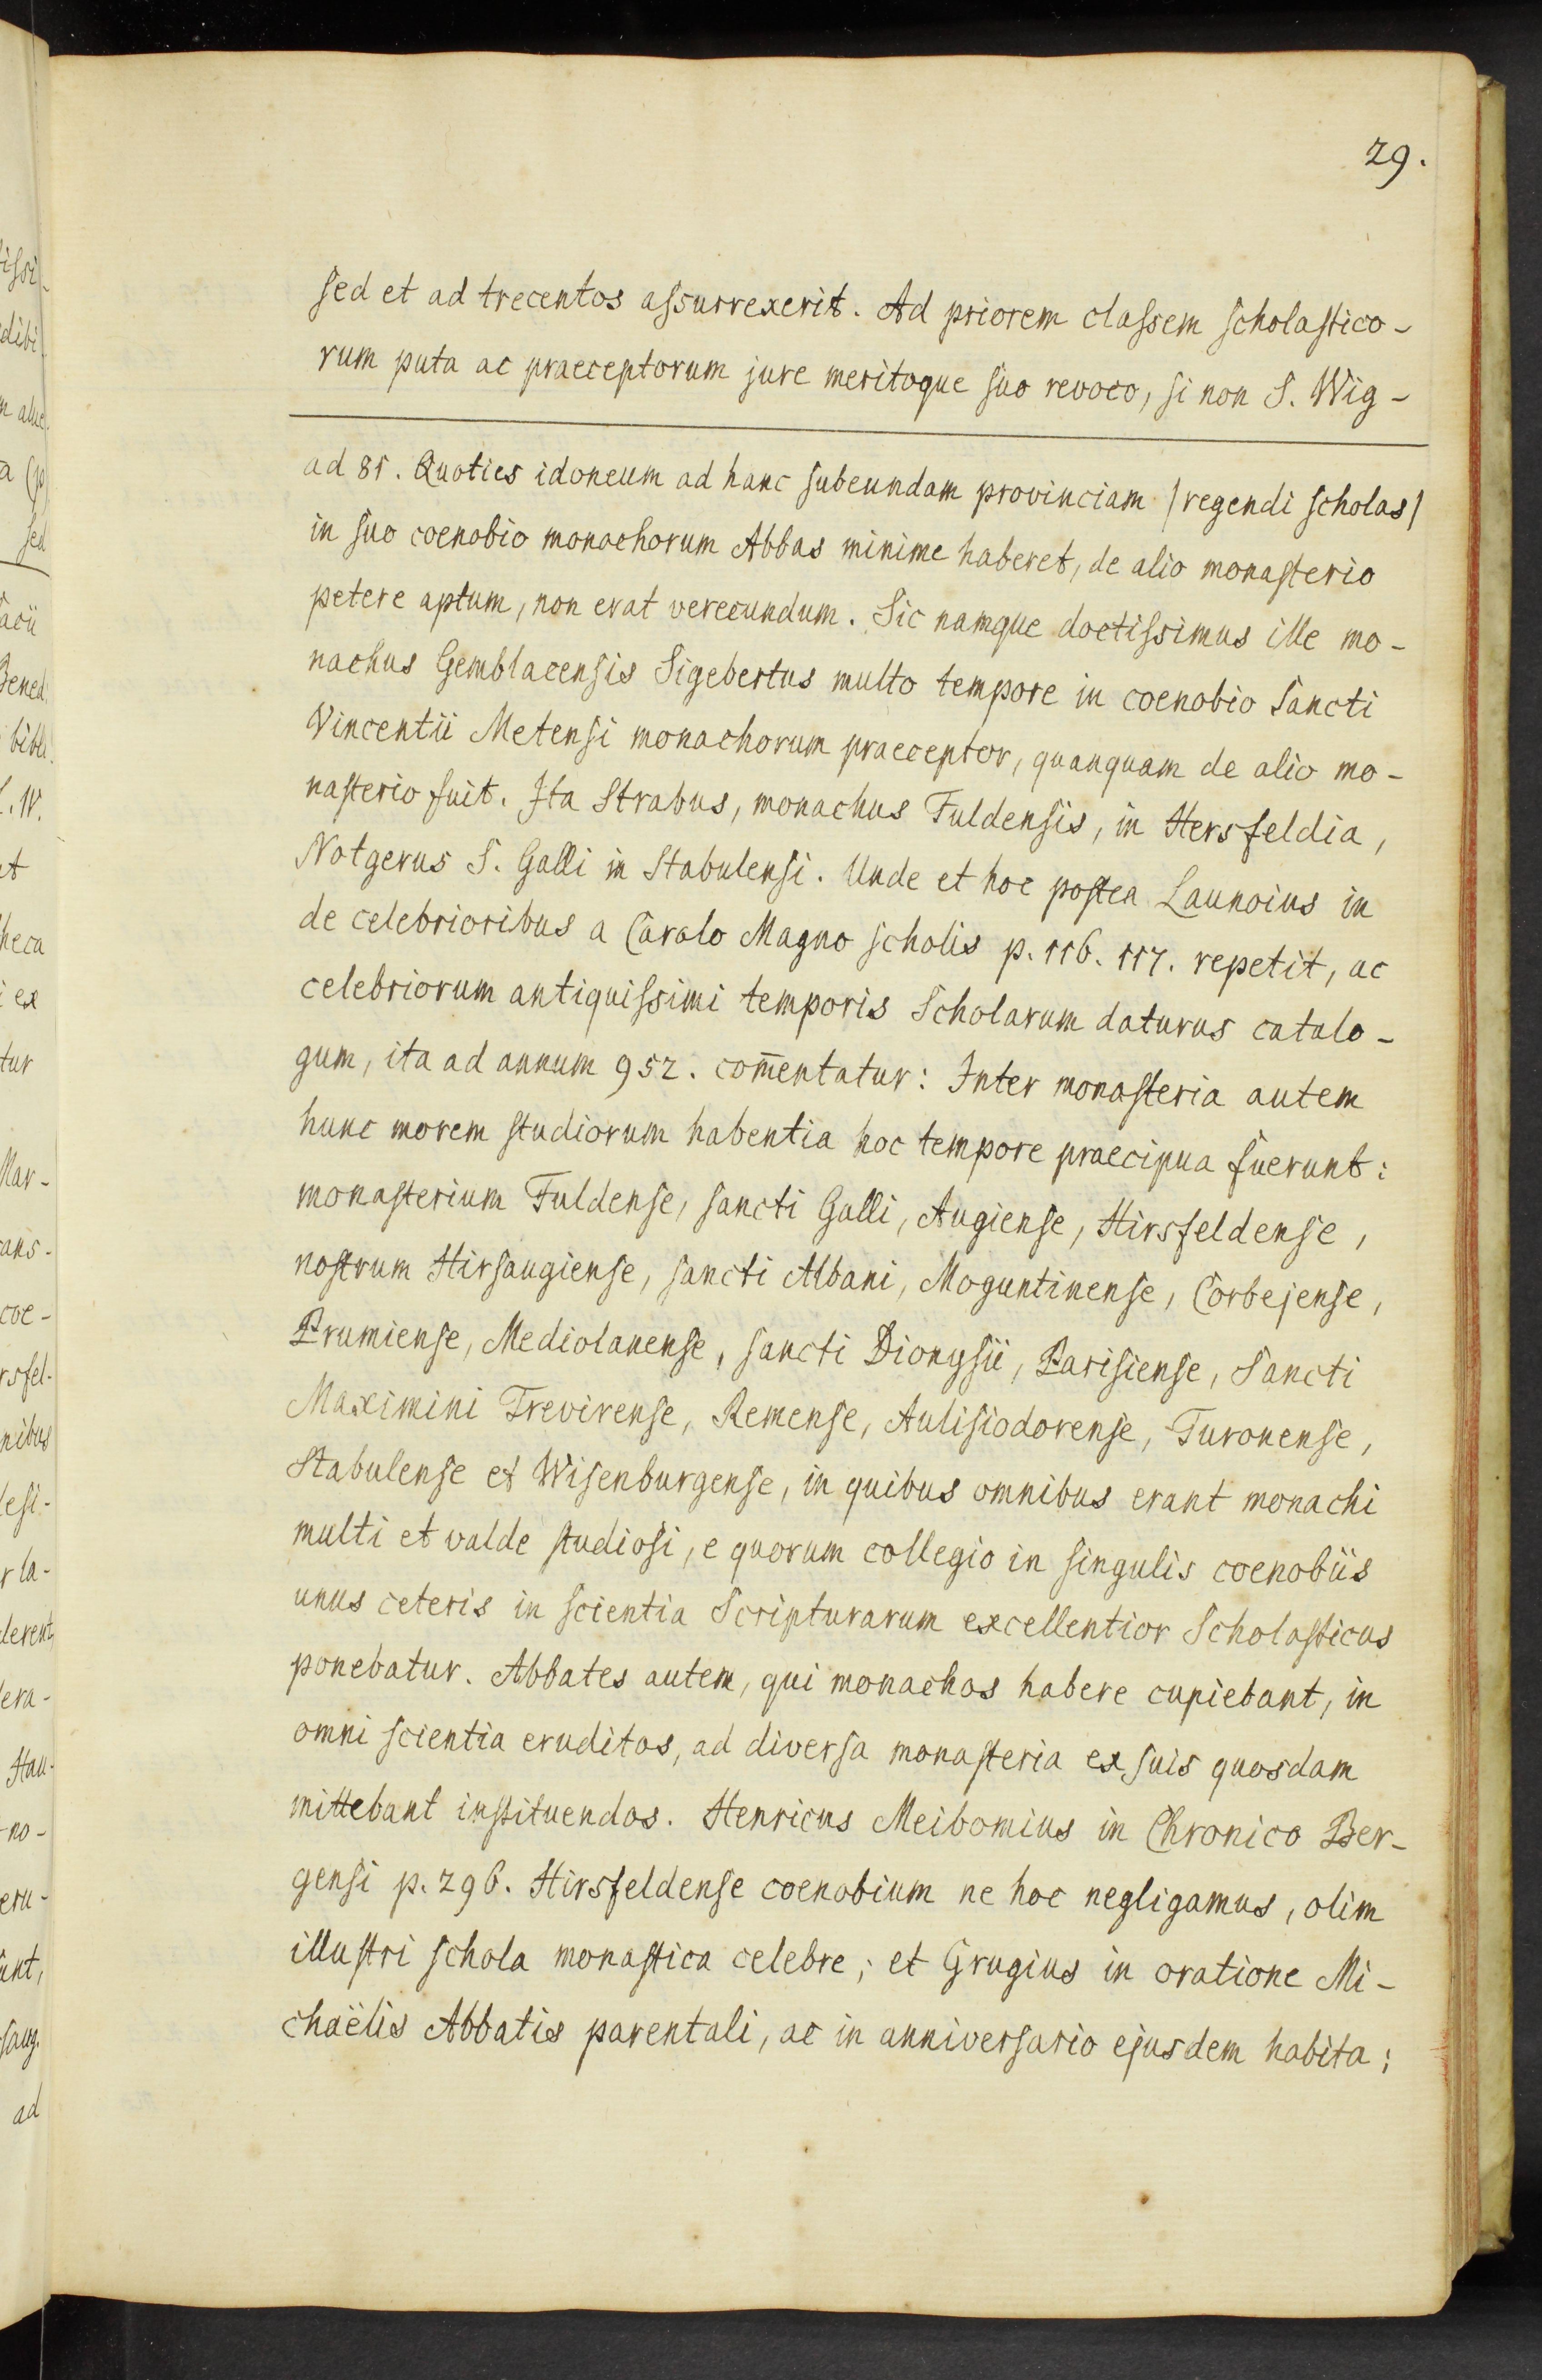 29.
sed et ad trecentos assurrexerit. Ad priorem classem scholastico-
rum puta ac praeceptorum jure meritoque suo revoco, si non S. Wig-
ad 85. Quoties idoneum ad hanc subeundam provinciam /regendi scholas/
in suo coenobio monachorum Abbas minime haberet, de alio monasterio
petere aptum, non erat verecundum. Sic namque doctissimus ille mo-
nachus Gemblacensis Sigebertus multo tempore in coenobio Sancti
Vincentii Metensi monachorum praeceptor, quanquam de alio mo-
nasterio fuit. Ita Strabus, monachus Fuldensis, in Hersfeldia,
Notgerus S. Galli in Stabulensi. Unde et hoc postea Launoius in
de celebrioribus a Carolo Magno scholis p. 116. 117. repetit, ac
celebriorum antiquissimi temporis Scholarum daturus catalo-
gum, ita ad annum 952. com̄entatur: Inter monasteria autem
hunc morem studiorum habentia hoc tempore praecipua fuerunt:
monasterium Fuldense, sancti Galli, Augiense, Hirsfeldense,
nostrum Hirsaugiense, sancti Albani, Moguntinense, Corbejense,
Prumiense, Mediolanense, sancti Dionysii, Parisiense, Sancti
Maximini Trevirense, Remense, Aulisiodorense, Turonense,
Stabulense et Wisenburgense, in quibus omnibus erant monachi
multi et valde studiosi, e quorum collegio in singulis coenobiis
unus ceteris in scientia Scripturarum excellentior Scholasticus
ponebatur. Abbates autem, qui monachos habere cupiebant, in
omni scientia eruditos, ad diversa monasteria ex suis quosdam
mittebant instituendos. Henricus Meibomius in Chronico Ber-
gensi p. 296. Hirsfeldense coenobium ne hoc negligamus, olim
illustri schola monastica celebre; et Grugius in oratione Mi-
chaëlis Abbatis parentali, ac in anniversario ejusdem habita: